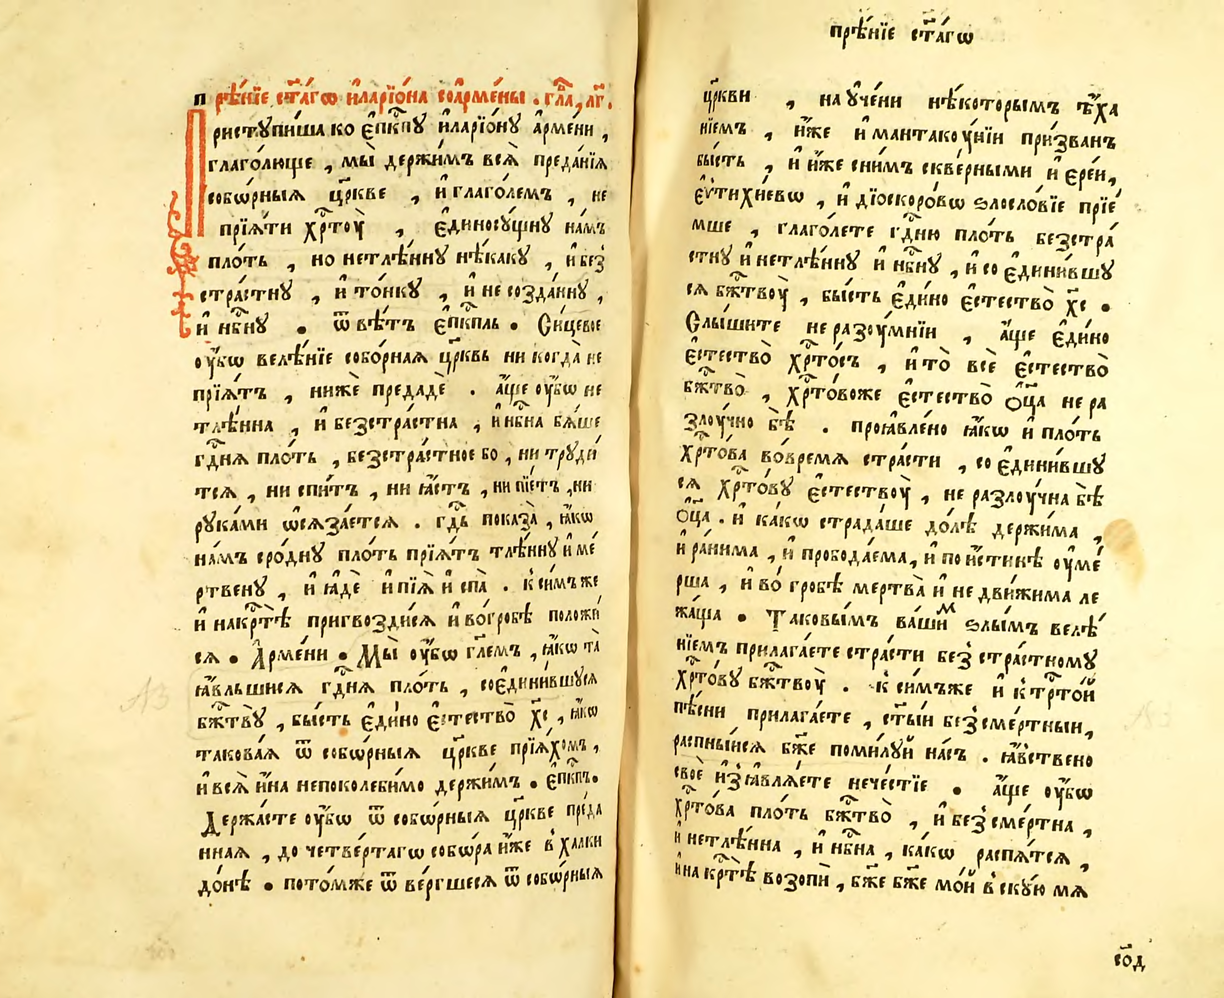 прѣ́нїе ст҃а́гѡ
прѣ́нїе ст҃а́гѡ и҆ларїо́на со а҆рме́ны . гл҃а, л҃г.
Приступи́ша ко є҆пк҃пу и҆ларїо́ну а҆рме́ни ,
глаго́люще , мы̀ держи́мъ всѧ̀ преда́нїѧ
собѡ́рныѧ цр҃кве , и҆ глаго́лемъ , не
прїѧ́ти хр҃тоу̀ , є҆диносу́щну на́мъ
пло́ть , но нетлѣ́нну нѣ́каку , и҆ без̾
стра́стну , и҆ то́нку , и҆ не созда́нну ,
и҆ нб҃ну . ѿвѣ́тъ є҆пк҃пль . Си́цевое
оу҆́бѡ велѣ́нїе собо́рнаѧ цр҃квь никогда̀ не
прїѧ́тъ , нижѐ предадѐ . а҆́ще оу҆́бѡ не
тлѣ́нна , и҆ безстра́стна , и҆ нб҃на бѧ́ше
гд҃нѧ пло́ть , безстра́стное бо , ни труди́
тсѧ , ни спи́тъ , ни ꙗ҆́стъ , ни пїе́тъ , ни
рука́ми ѡ҆сѧза́етсѧ . гд҃ь показа̀ , ꙗ҆́кѡ
на́мъ сро́дну пло́ть прїѧ́тъ тлѣ́нну и҆ ме́
ртвену , и҆ ꙗ҆дѐ и҆ пїѧ̀ и҆ спа̀ . к си́мъ же
и҆ на кр҃тѣ̀ пригвозди́сѧ и҆ во гро́бѣ положи́
сѧ . А҆рме́ни . Мы̀ оу҆́бѡ гл҃емъ , ꙗ҆́кѡ та̀
ꙗ҆́вльшисѧ гд҃нѧ пло́ть , соє҆дини́вшусѧ
бж҃тву̀ , бы́сть є҆ди́но є҆стество̀ хс҃ , ꙗ҆́кѡ
такова́ѧ ѿ собѡ́рныѧ цр҃кве прїѧ́хомъ ,
и҆ всѧ̀ и҆́на непоколеби́мо держи́мъ . є҆пк҃пъ .
Держа́сте оу҆́бѡ ѿ собѡ́рныѧ цр҃кве преда́
ннаѧ , до четве́ртагѡ собѡ́ра и҆́же в̾ халки
до́нѣ . пото́мже ѿве́ргшесѧ ѿ собѡ́рныѧ
цр҃кви , нау́чени нѣ́которымъ є҆ѵ҆ха
нїемъ , и҆́же и҆ мантакоу́нїи при́званъ
бы́сть , и҆ и҆́же сни́мъ скве́рными и҆єре́и,
є҆ѵтихїевѡ , и҆ дїоско́ровѡ ѕлосло́вїе прїе́
мше , глаго́лете гд҃ню пло́ть безстра́
стну и҆ нетлѣ́нну и҆ нб҃ну , и҆ соє҆дини́вшу
сѧ бж҃твоу̀ , бы́сть є҆ди́но є҆стество̀ хс҃ .
Слы́шите неразоу́мнїи , а҆́ще є҆ди́но
є҆стество̀ хр҃то́съ , и҆ то̀ всѐ є҆стество̀
бж҃тво̀ , хр҃то́во же є҆стество̀ ѻ҆ц҃а не ра
злоу́чно бѣ̀ . проꙗ҆вле́но ꙗ҆́кѡ и҆ пло́ть
хр҃то́ва во вре́мѧ стра́сти , соє҆дини́вшу
сѧ хр҃то́ву є҆стествоу̀ , не разлоу́чна бѣ̀
ѻ҆ц҃а . и҆ ка́кѡ страда́ше до́лѣ держи́ма ,
и҆ ра́нима , и҆ пробода́ема , и҆ по и҆́стинѣ оу҆ме́
рша , и҆ во гро́бѣ мертва̀ и҆ недви́жима ле
жа́ща . Таковы́мъ ва́шим ѕлы́мъ велѣ́
нїемъ прилага́ете стра́сти без̾стра́стному
хр҃то́ву бж҃твоу̀ . к си́мъже и҆ к тр҃то́й
пѣ́сни прилага́ете , ст҃ы́й без̾сме́ртныи,
распны́исѧ бж҃е поми́луй на́съ . ꙗ҆́вствено
своѐ и҆з̾ꙗ҆влѧ́ете нече́стїе . а҆́ще оу҆́бѡ
хр҃то́ва пло́ть бж҃тво̀ , и҆ без̾сме́ртна ,
и҆ нетлѣ́нна , и҆ нб҃на , ка́кѡ распѧ́тсѧ ,
и҆ на кр҃тѣ̀ возопѝ , бж҃е бж҃е мо́й в̾ску́ю мѧ
со҃д